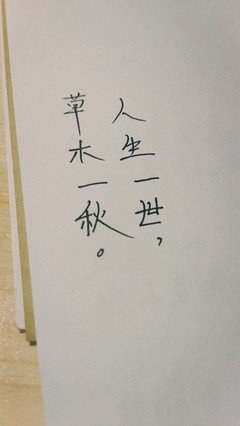 人生一世，
草木一秋。